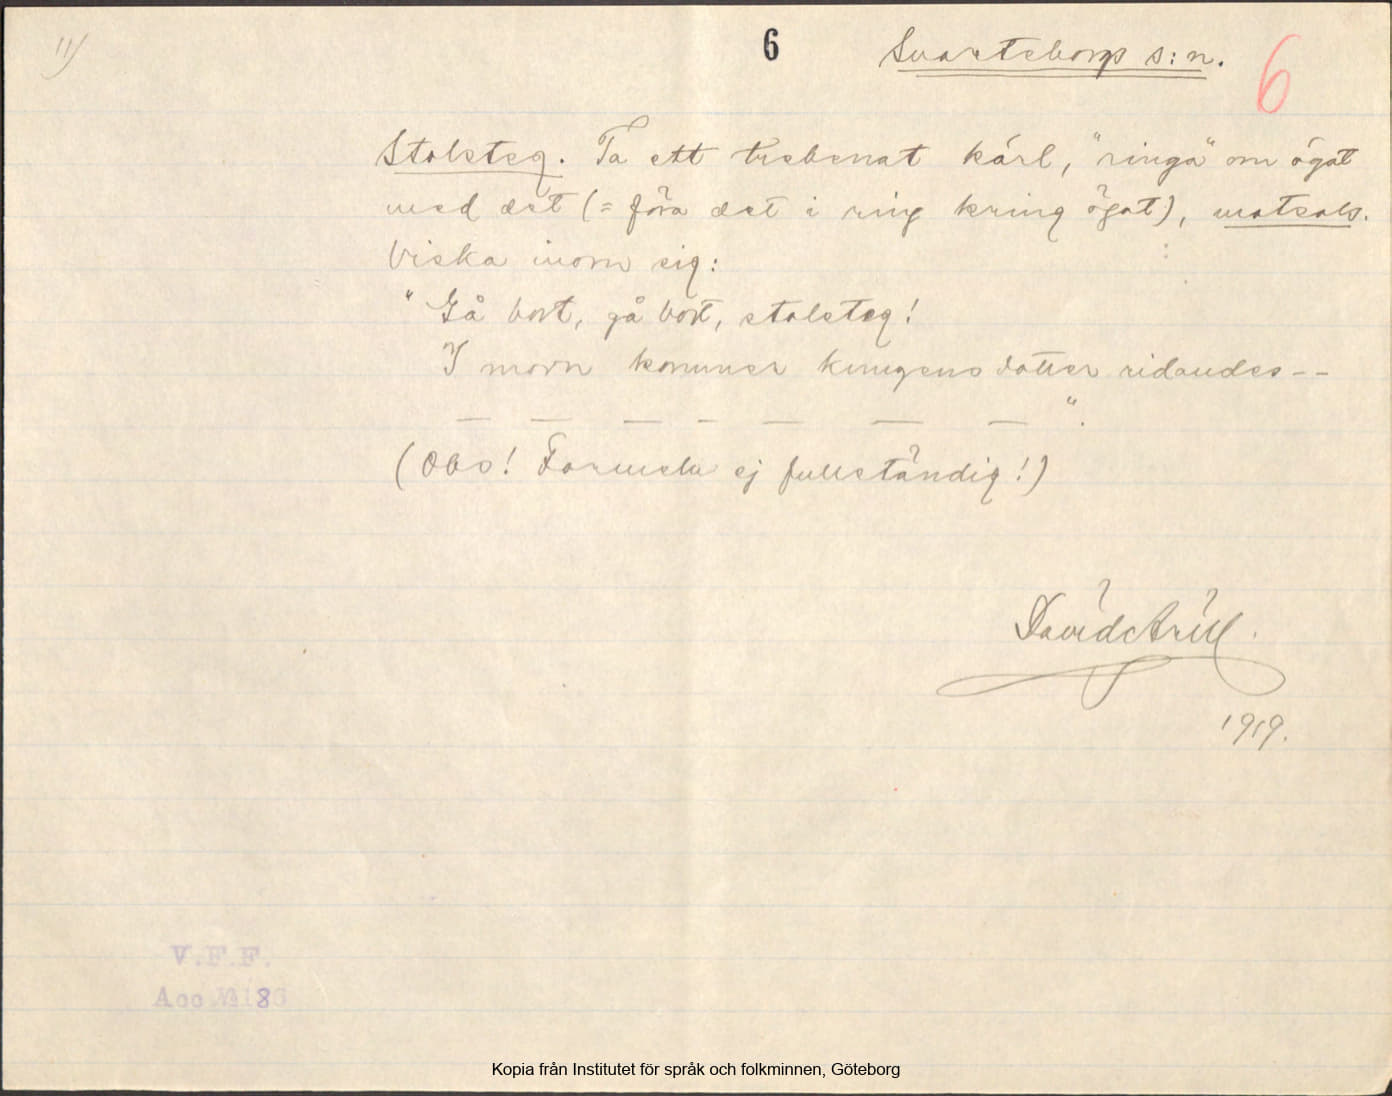 11)
6
Svarteborgs s:n.
6
Stolsteg. Ta ett trebenat kärl, "ringa" om ögat
med det (= föra det i ring kring ögat), motsols.
Viska inom sig:
"Gå bort, gå bort, stolsteg!
I morn kommer kungens dotter ridandes --
— — — - — — — ".
(Obs! Formeln ej fullständig!)
David Arill.
1919.
V.F.F.
Acc № 186
Kopia från Institutet för språk och folkminnen, Göteborg